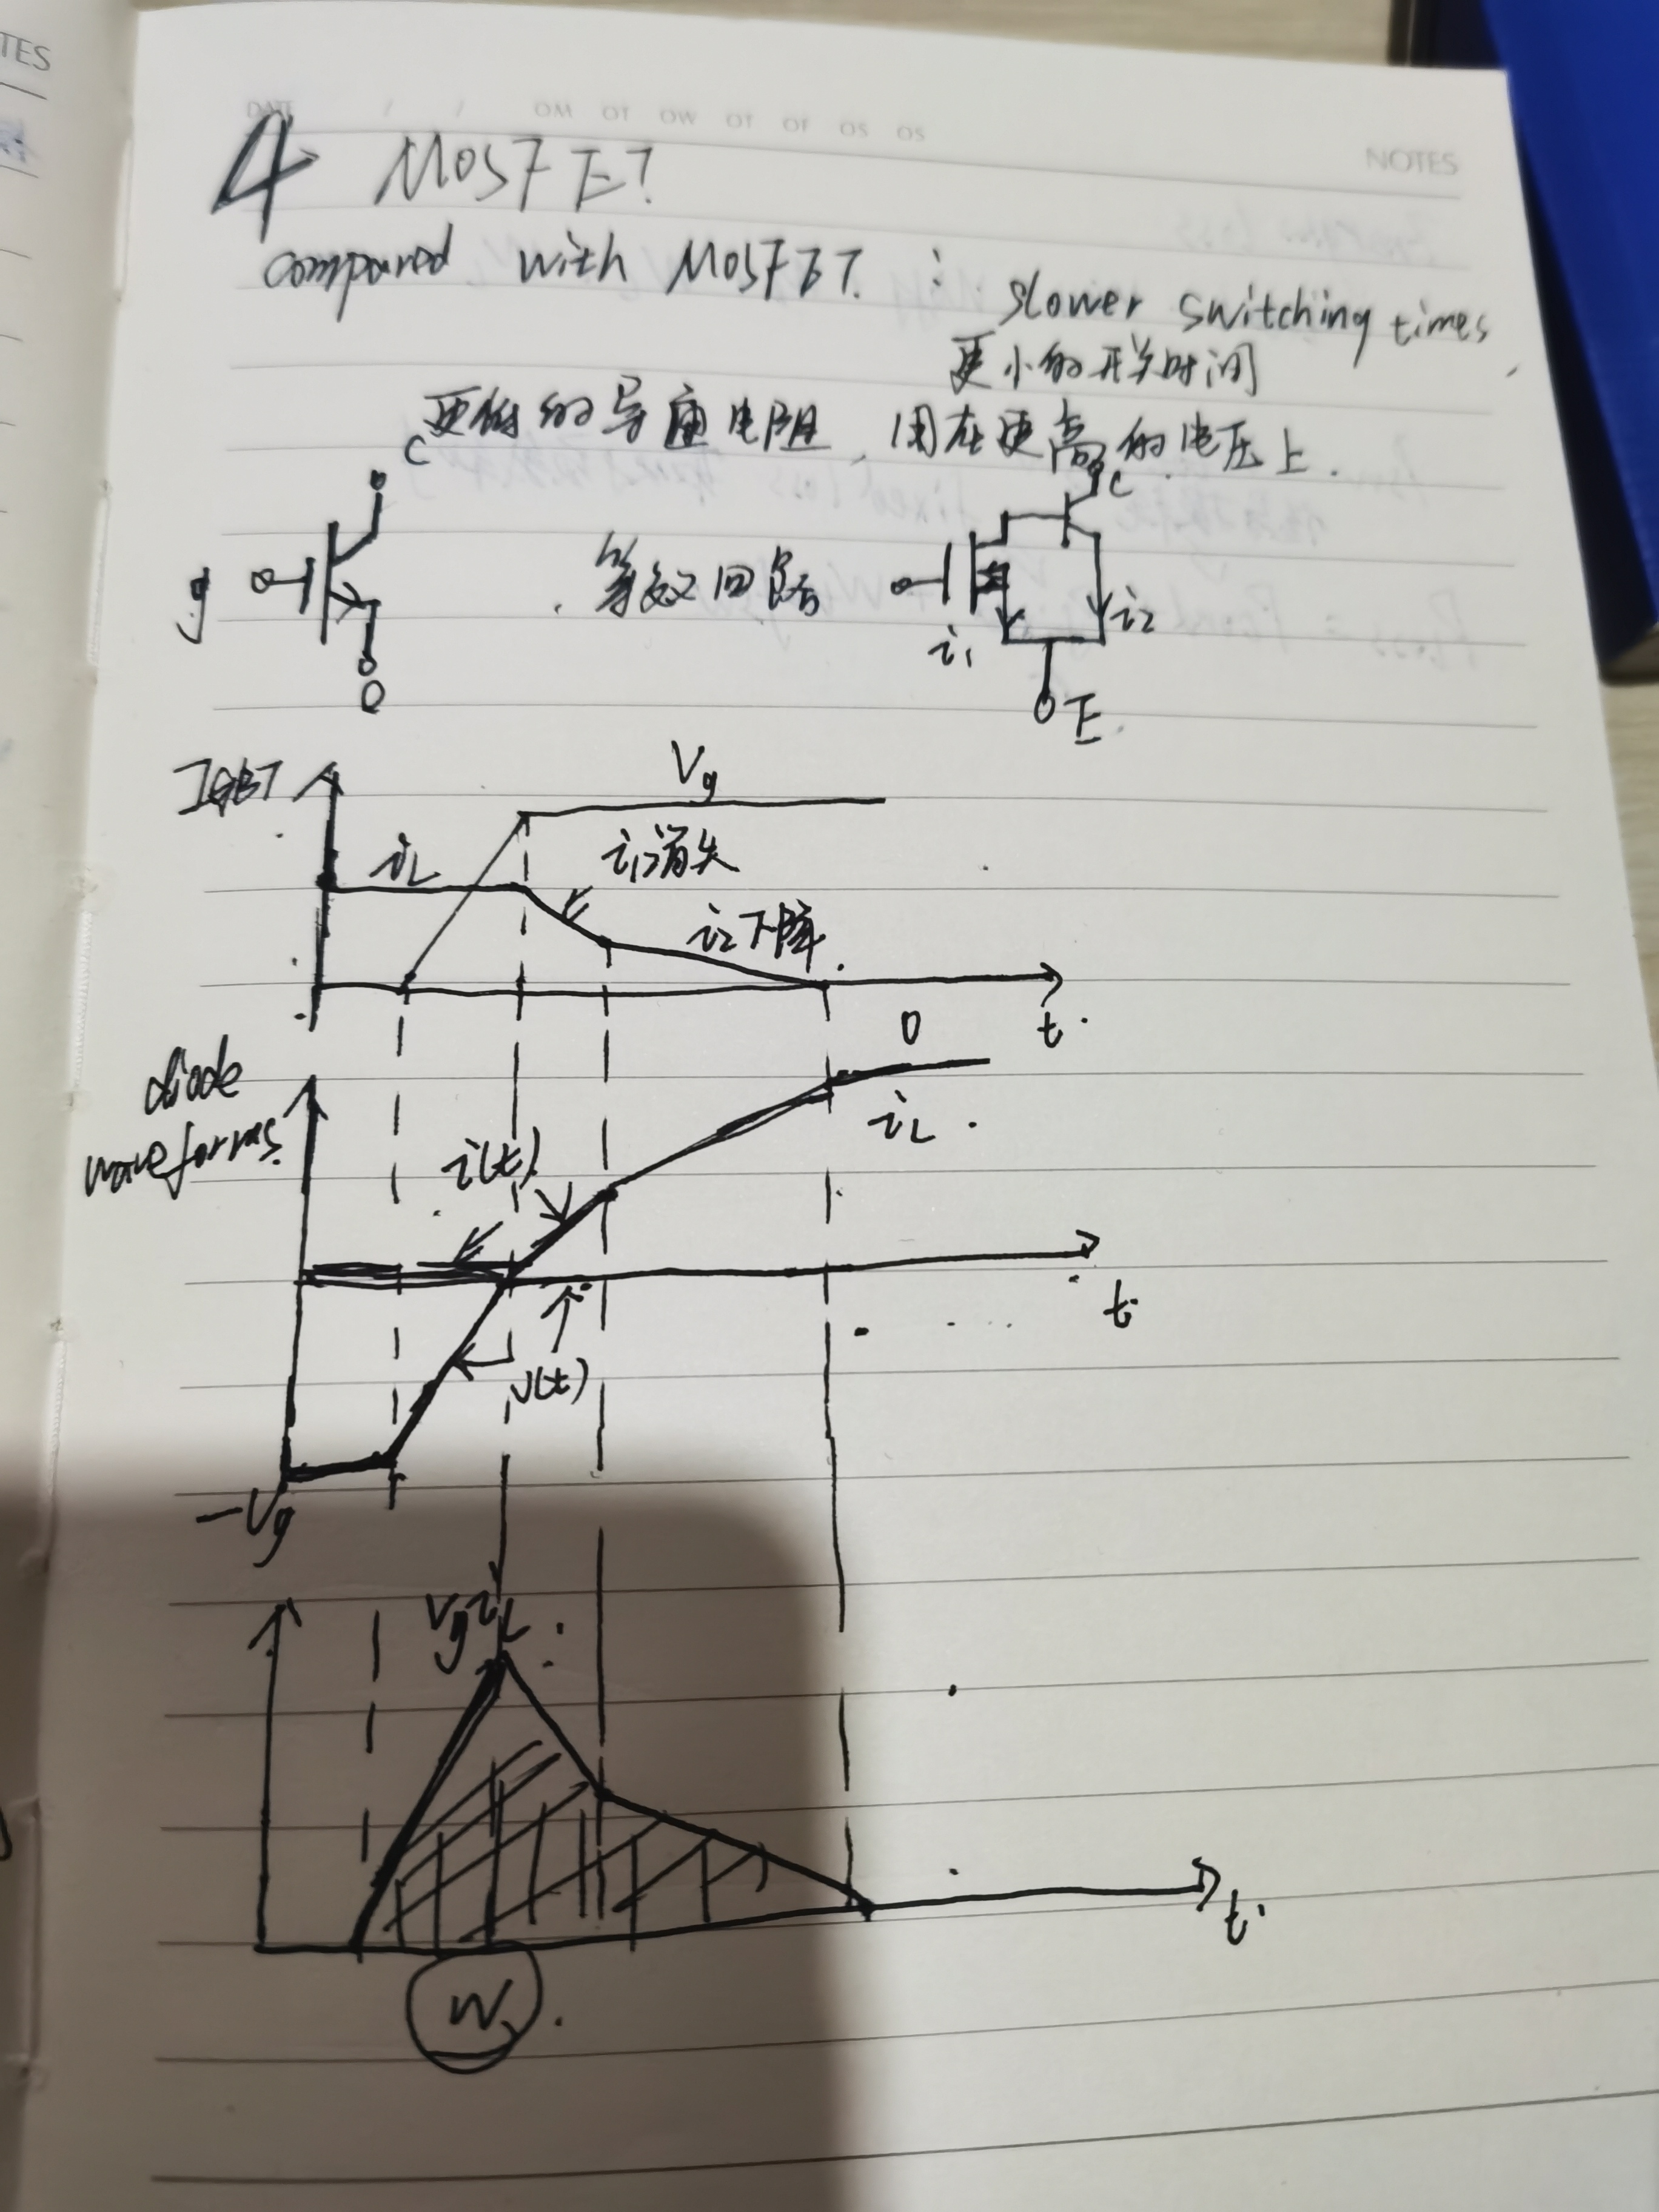 TES
DATE / / OM OT OW OT OF OS OS
NOTES
4 MOSFET
compared with MOSFET :
slower switching times
更小的开关时间
更低的导通电阻,用在更高的电压上.
C
C
g
等效回路
i1
i2
O
E
IGBT
Vg
iL
i1消失
i2下降
t
0
diode
waveforms.
i(t)
iL
t
v(t)
-Vg
VgiL
t
W